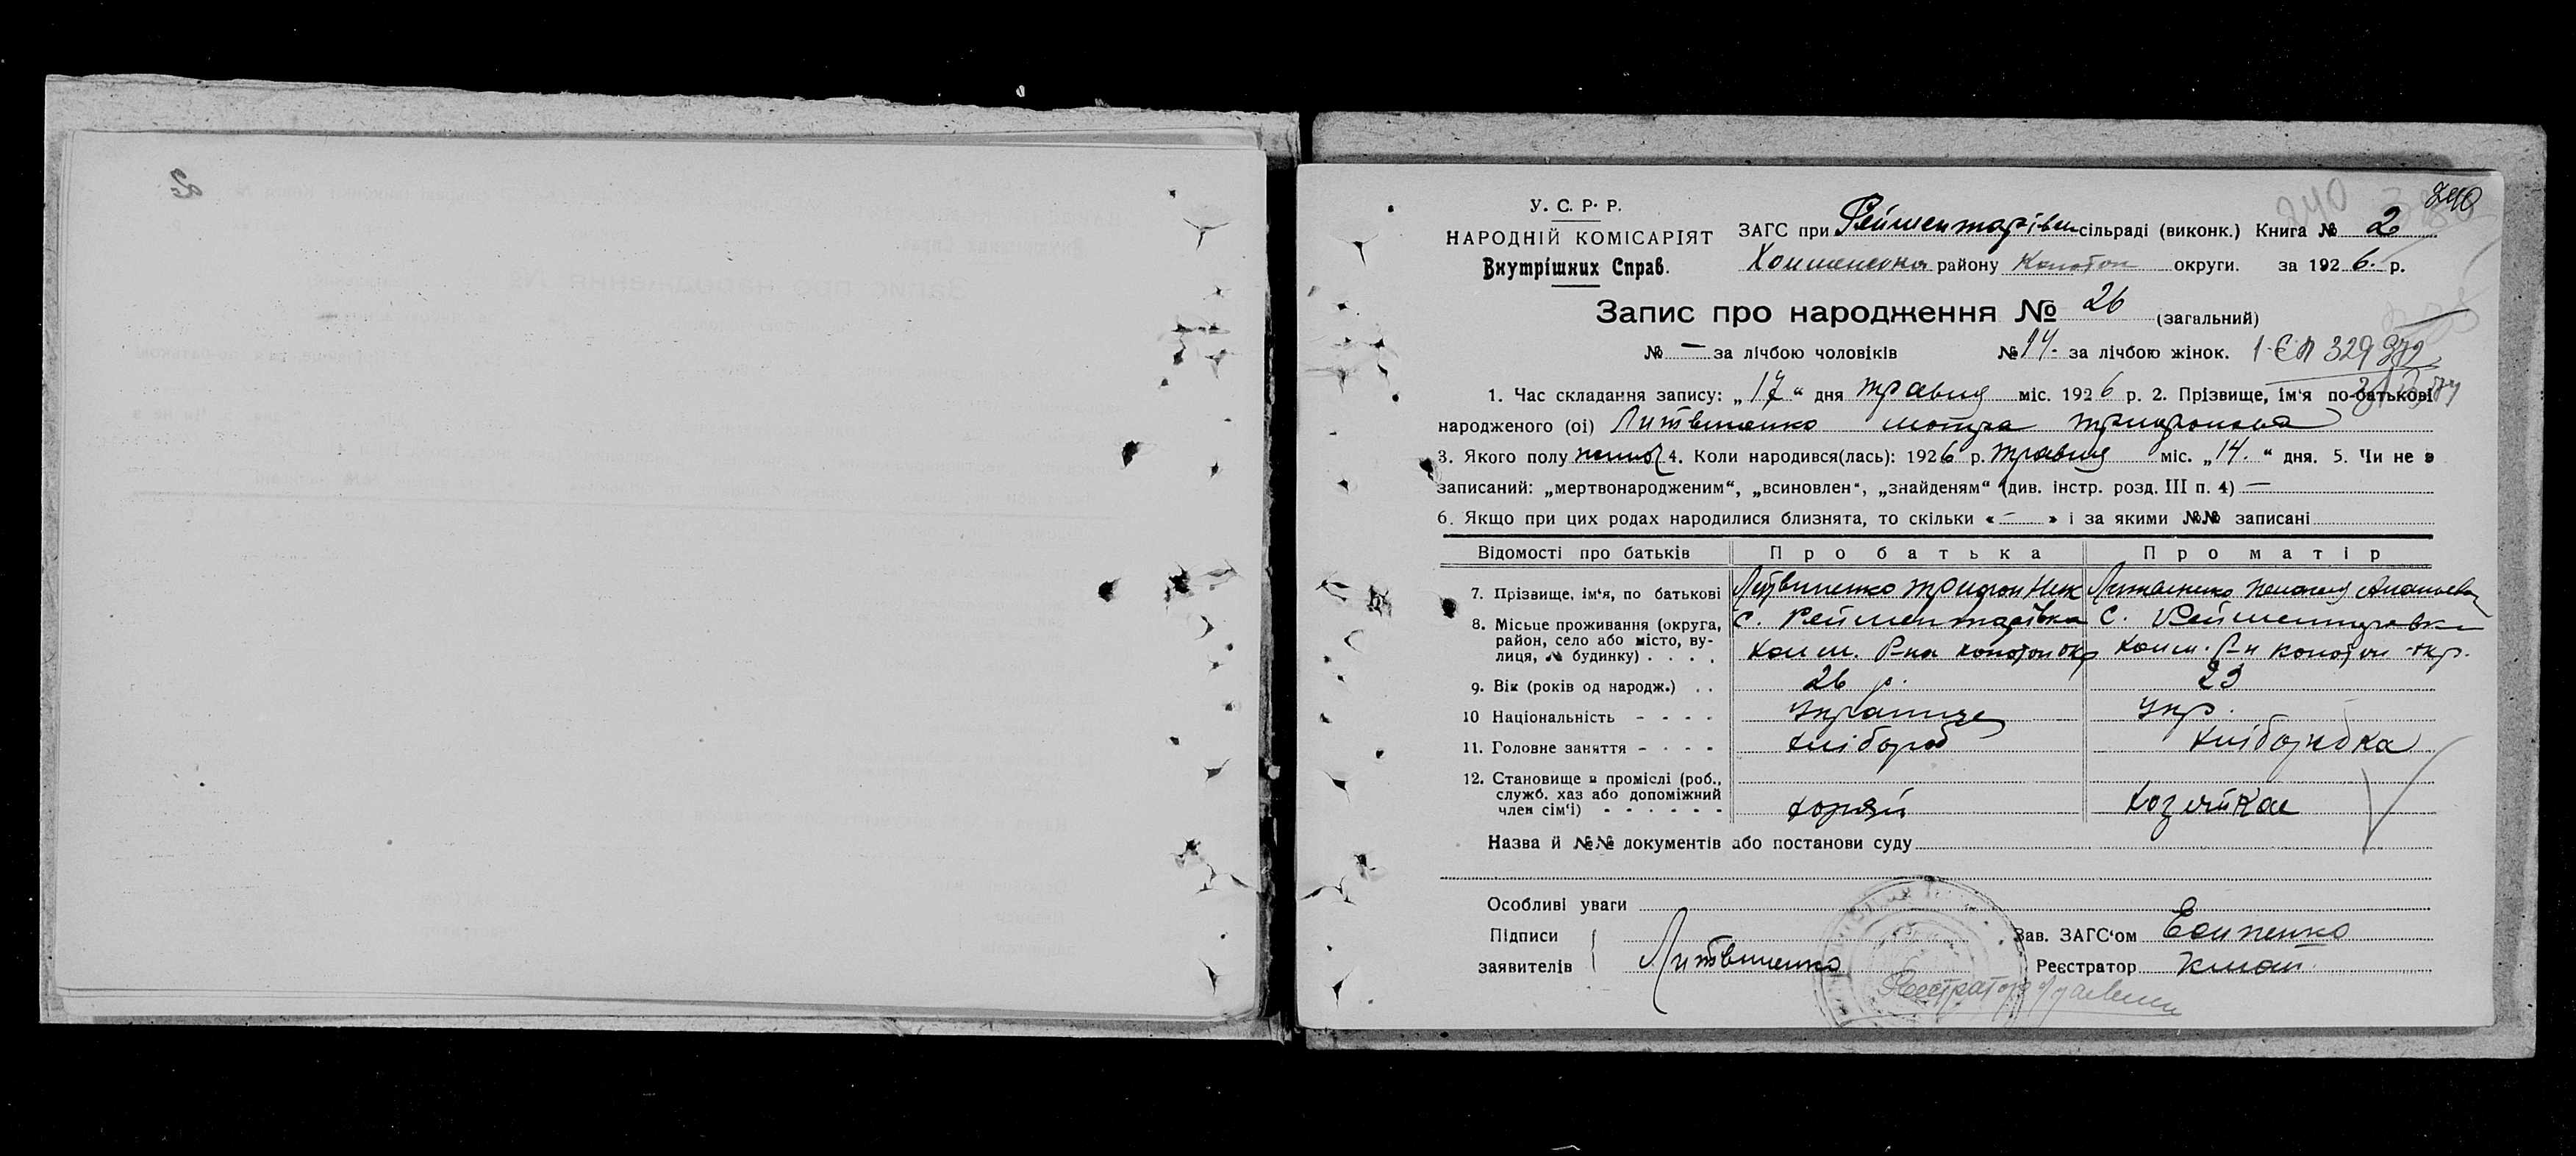 У. С. Р. Р.
НАРОДНІЙ КОМІСАРІЯТ
Внутрішних Справ.
240
ЗАГС при Рейментарівск сільраді (виконк.) Книга № 2
району Конотоп округи. за 1926. р.
Запис про народження № 26 (загальний)
№ — за лічбою чоловіків № 14. за лічбою жінок. 1-ЄП 329
1. Час складання запису: „17“ дня травня міс. 1926 р. 2. Прізвище, ім'я по-батькові
народженого (ої) Литвиненко Мотра Трифоновна
3. Якого полу жіноч 4. Коли народився(лась): 1926 р. травня міс. „14.“ дня. 5. Чи не є
записаний: „мертвонародженим“, „всиновлен“, „знайденям“ (див. інстр. розд. III п. 4) —
6. Якщо при цих родах народилися близнята, то скільки «—» і за якими №№ записані
Відомості про батьків Про батька Про матір
7. Прізвище, ім'я, по батькові Литвиненко Трифон Ник Литвиненко
8. Місьце проживання (округа, с. Рейментарівка с. Рейментаровка
район, село або місто, ву-
лиця, № будинку) . . . . Холм. Р-на конотоп окр Холм. Р-н конотоп окр.
9. Вік (років од народж.) . . 26 р. 23
10 Національність - - - - Українец Укр.
11. Головне заняття - - - - хлібороб хліборобка
12. Становище в промислі (роб.,
служб. хаз або допоміжний
член сім'ї) - - - - - - хозяй хозяйка
Назва й №№ документів або постанови суду
Особливі уваги
Підписи
заявителів Литвиненко
Зав. ЗАГС'ом Есипенко
Реєстратор
Реєстратор